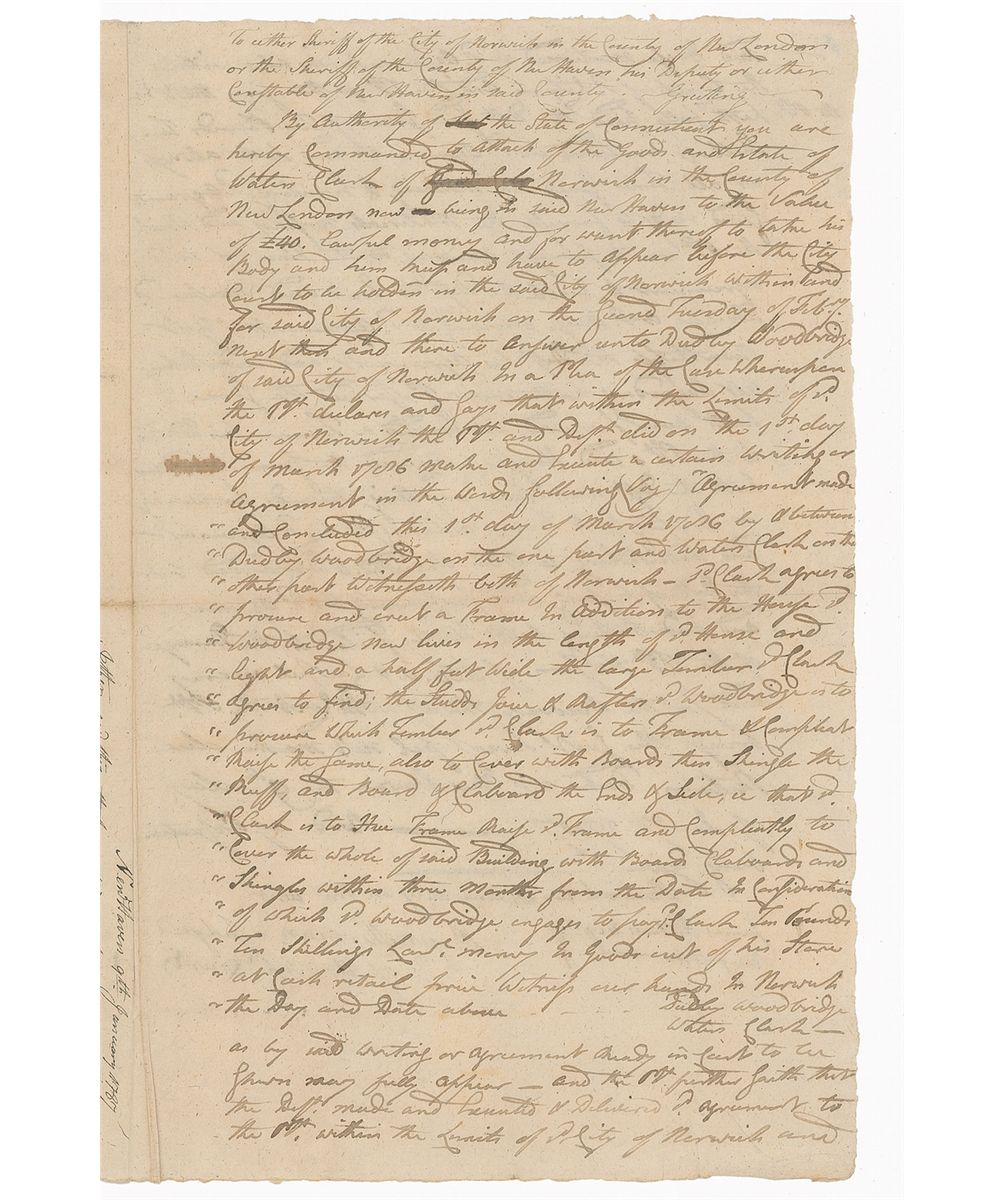 To either Sheriff of the City of Norwich in the County of New London
or the Sheriff of the County of New Haven his Deputy or either
Constable of New Haven in said County. Greeting
By Authority of the State of Connecticut you are
hereby Commanded to attach of the Goods and Estate of
Waters Clark of Norwich in the County of
New London now being in said New Haven to the Value
of £40. Lawful money and for want thereof to take his
Body and him keep and have to appear before the City
Court to be holden in the said City of Norwich within and
for said City of Norwich on the Second Tuesday of Feb.ry
Next then and there to Answer unto Dudley Woodbridge
of said City of Norwich In a Plea of the Case Whereupon
the Plt. declares and Says that within the Limits of sd.
City of Norwich the Plt. and Deft. did on the 1st. day
of March 1786 make and Execute a certain writing or
Agreement in the Words following (Viz) "Agreement made
" and Concluded this 1st. day of March 1786 by & between
" Dudley Woodbridge on the one part and Waters Clark on the
" other part Witnesseth both of Norwich – sd. Clark agrees to
" procure and erect a Frame In Addition to the House sd.
" Woodbridge now lives in the length of sd. House and
" Eight and a half feet Wide the large Timber sd. Clark
" agrees to find; the Studds Joice & Rafters sd. Woodbridge is to
" procure Which Timber sd. Clark is to Frame & Compleat
" Raise the Same, also to Cover with Boards then Shingle the
" Ruff, and Board & Claboard the Ends & Side, ie that sd.
" Clark is to Hue Frame Raise sd. Frame and Compleatly to
" Cover the whole of said Building with Boards Claboards and
" Shingles within three Months from the Date In Consideration
" of which sd. Woodbridge engages to pay sd. Clark Ten Pounds
" Ten Shillings Law.l money In Goods out of his Store
" at Cash retail price Witness our hands In Norwich
" the Day and Date above Dudley Woodbridge
Waters Clark –
as by said writing or agreement Ready in Court to be
Shewn may fully appear – and the Plt. further Saith that
the Deft. made and Executed & Delivered sd. agreement to
the Plt. within the Limits of sd. City of Norwich and
New Haven 9th January 1787